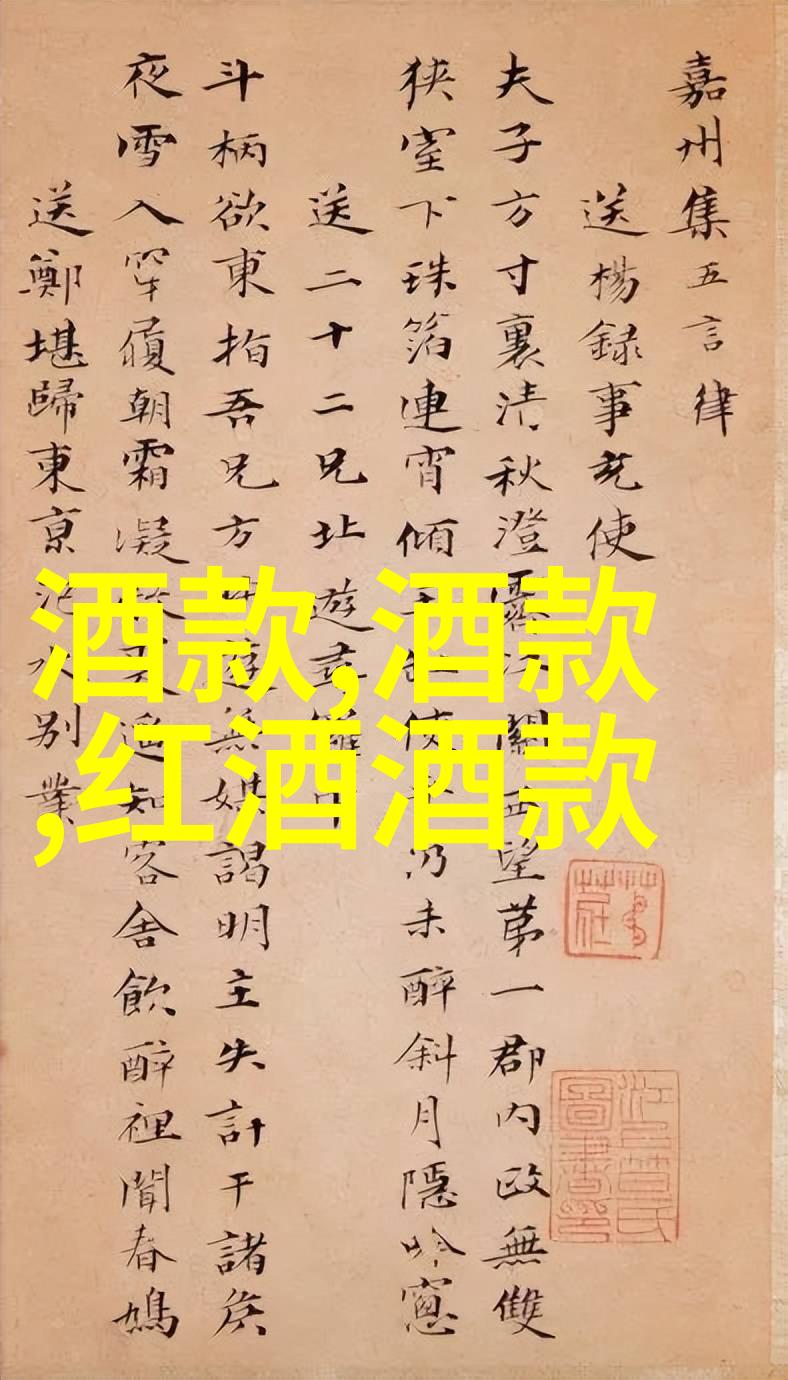 嘉州集五言律
送楊録事充使
夫子方寸裏清秋澄霽江關西望第一郡内政無雙
狹室下珠箔連宵傾使未醉斜月隱吟窻
送二十二兄北遊
斗柄欲東指吾兄方遊無媒謁明主失計干諸侯
夜雪入穿履朝霜凝遥知客舍飲醉裡聞春鳩
送鄭堪歸東京汜水别業
江上笪氏圖書印
酒款,酒款
,红酒酒款